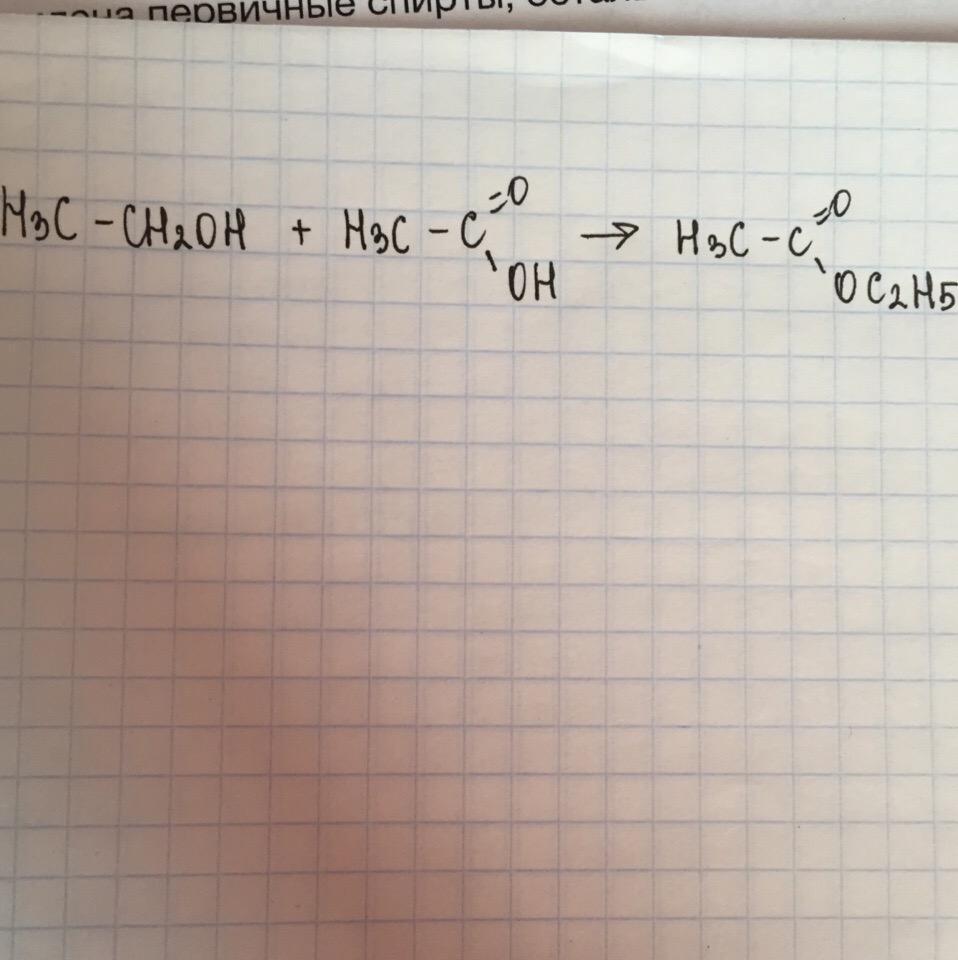 первичные спирты,
H3C - CH2OH + H3C - C =O - OH → H3C - C =O - OC2H5